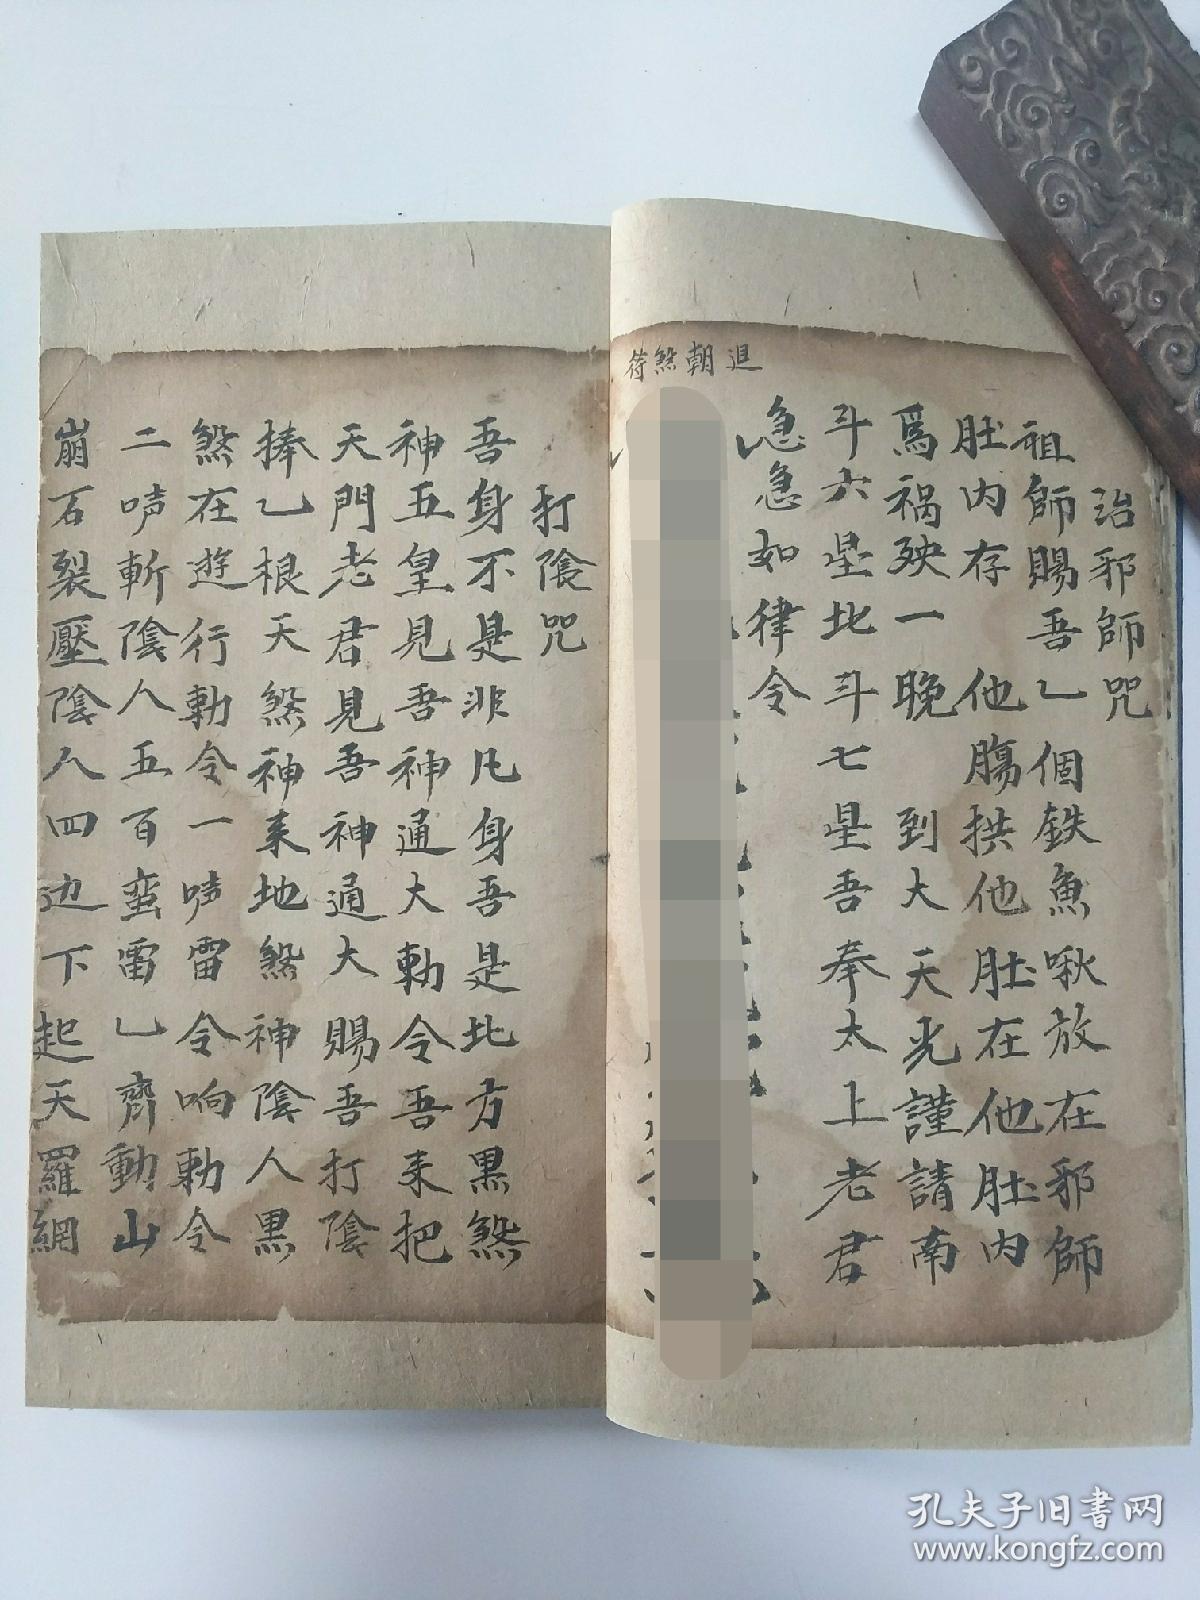 治邪師咒
祖師賜吾乙個鉄魚啾放在邪師
肚内存他腸拱他肚在他肚内
爲禍殃一晚到大天光謹請南
斗六星北斗七星吾奉太上老君
急急如律令
退朝煞符
打陰咒
吾身不是非凡身吾是北方黑煞
神五皇見吾神通大勅令吾来把
天門老君見吾神通大賜吾打陰
捧乙根天煞神来地煞神陰人黑
煞在遊行勅令一唥雷令响勅令
二唥斬陰人五百蛮雷乙齊動山
崩石裂壓陰人四边下起天羅網
孔夫子旧书网
www.kongfz.com